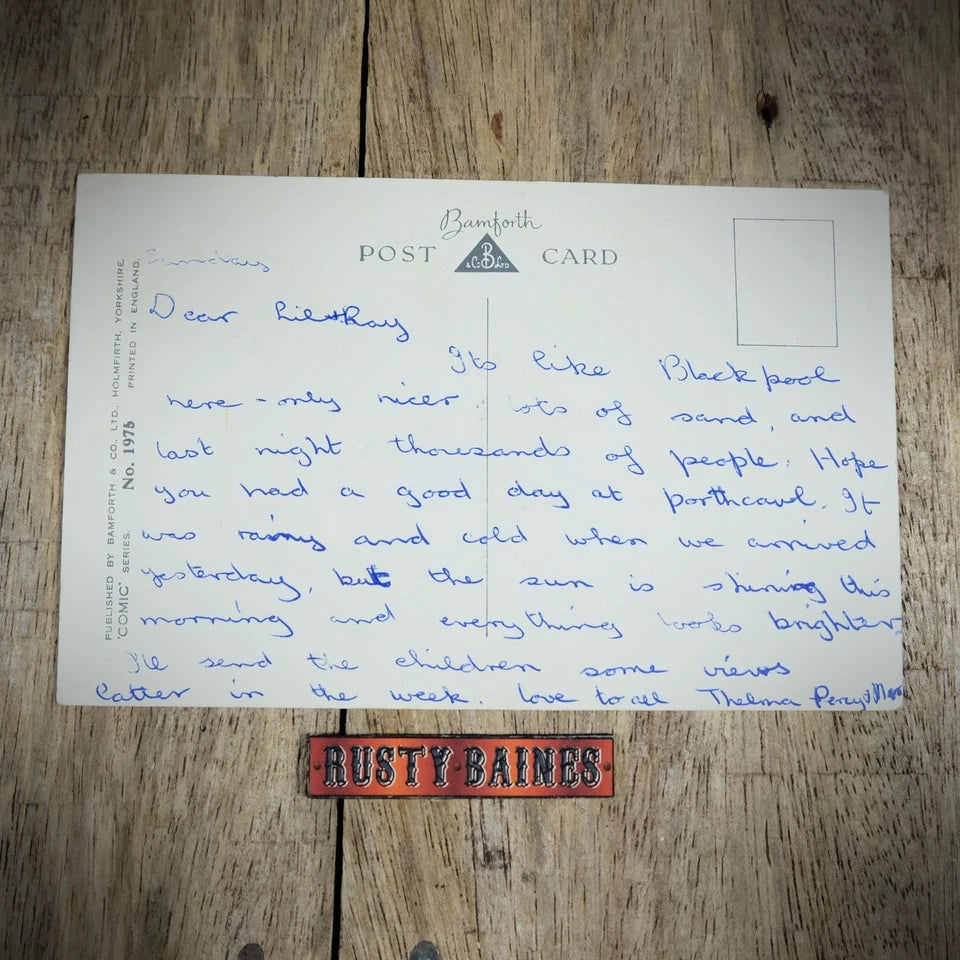 Bamforth
POST CARD
B
& Co LTD
PUBLISHED BY BAMFORTH & CO., LTD., HOLMFIRTH, YORKSHIRE.
'COMIC' SERIES. No. 1975 PRINTED IN ENGLAND.
Sunday
Dear
Its like Blackpool
here - only nicer. lots of sand, and
last night thousands of people. Hope
you had a good day at Porthcawl. It
was rainy and cold when we arrived
yesterday, but the sun is shining this
morning and everything looks brighter.
I'll send the children some views
latter in the week. love to all Thelma Percy
RUSTY BAINES